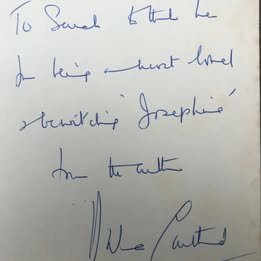 To Sarah to thank her
for being a most loved
& bewitching 'Josephine'
from the author